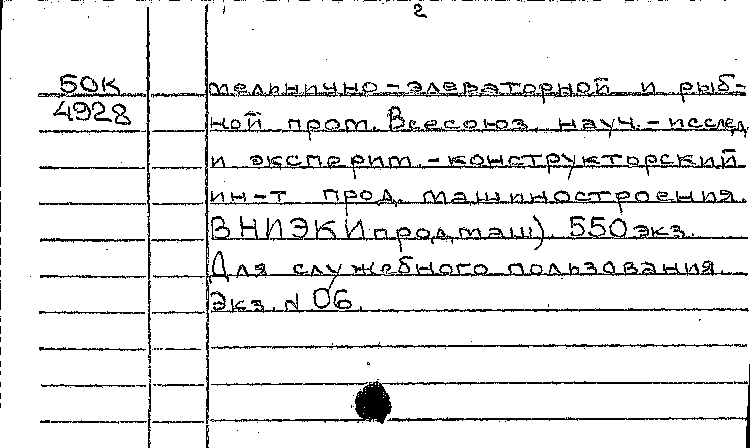 2
50К
4928
мельнично-элеваторной и рыб-
ной пром. Всесоюз. науч.-исслед.
и эксперим.-конструкторский
ин-т прод. машиностроения.
ВНИЭКИпродмаш). 550 экз.
Для служебного пользования.
Экз. № 06.